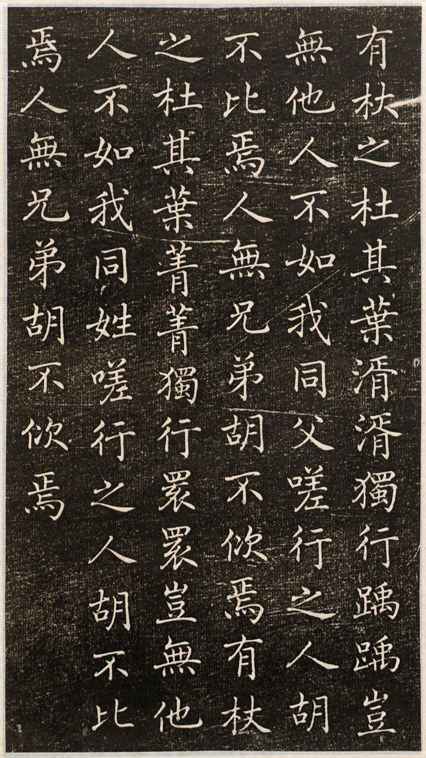 有杕之杜其葉湑湑獨行踽踽豈
無他人不如我同父嗟行之人胡
不比焉人無兄弟胡不佽焉有杕
之杜其葉菁菁獨行睘睘豈無他
人不如我同姓嗟行之人胡不比
焉人無兄弟胡不佽焉